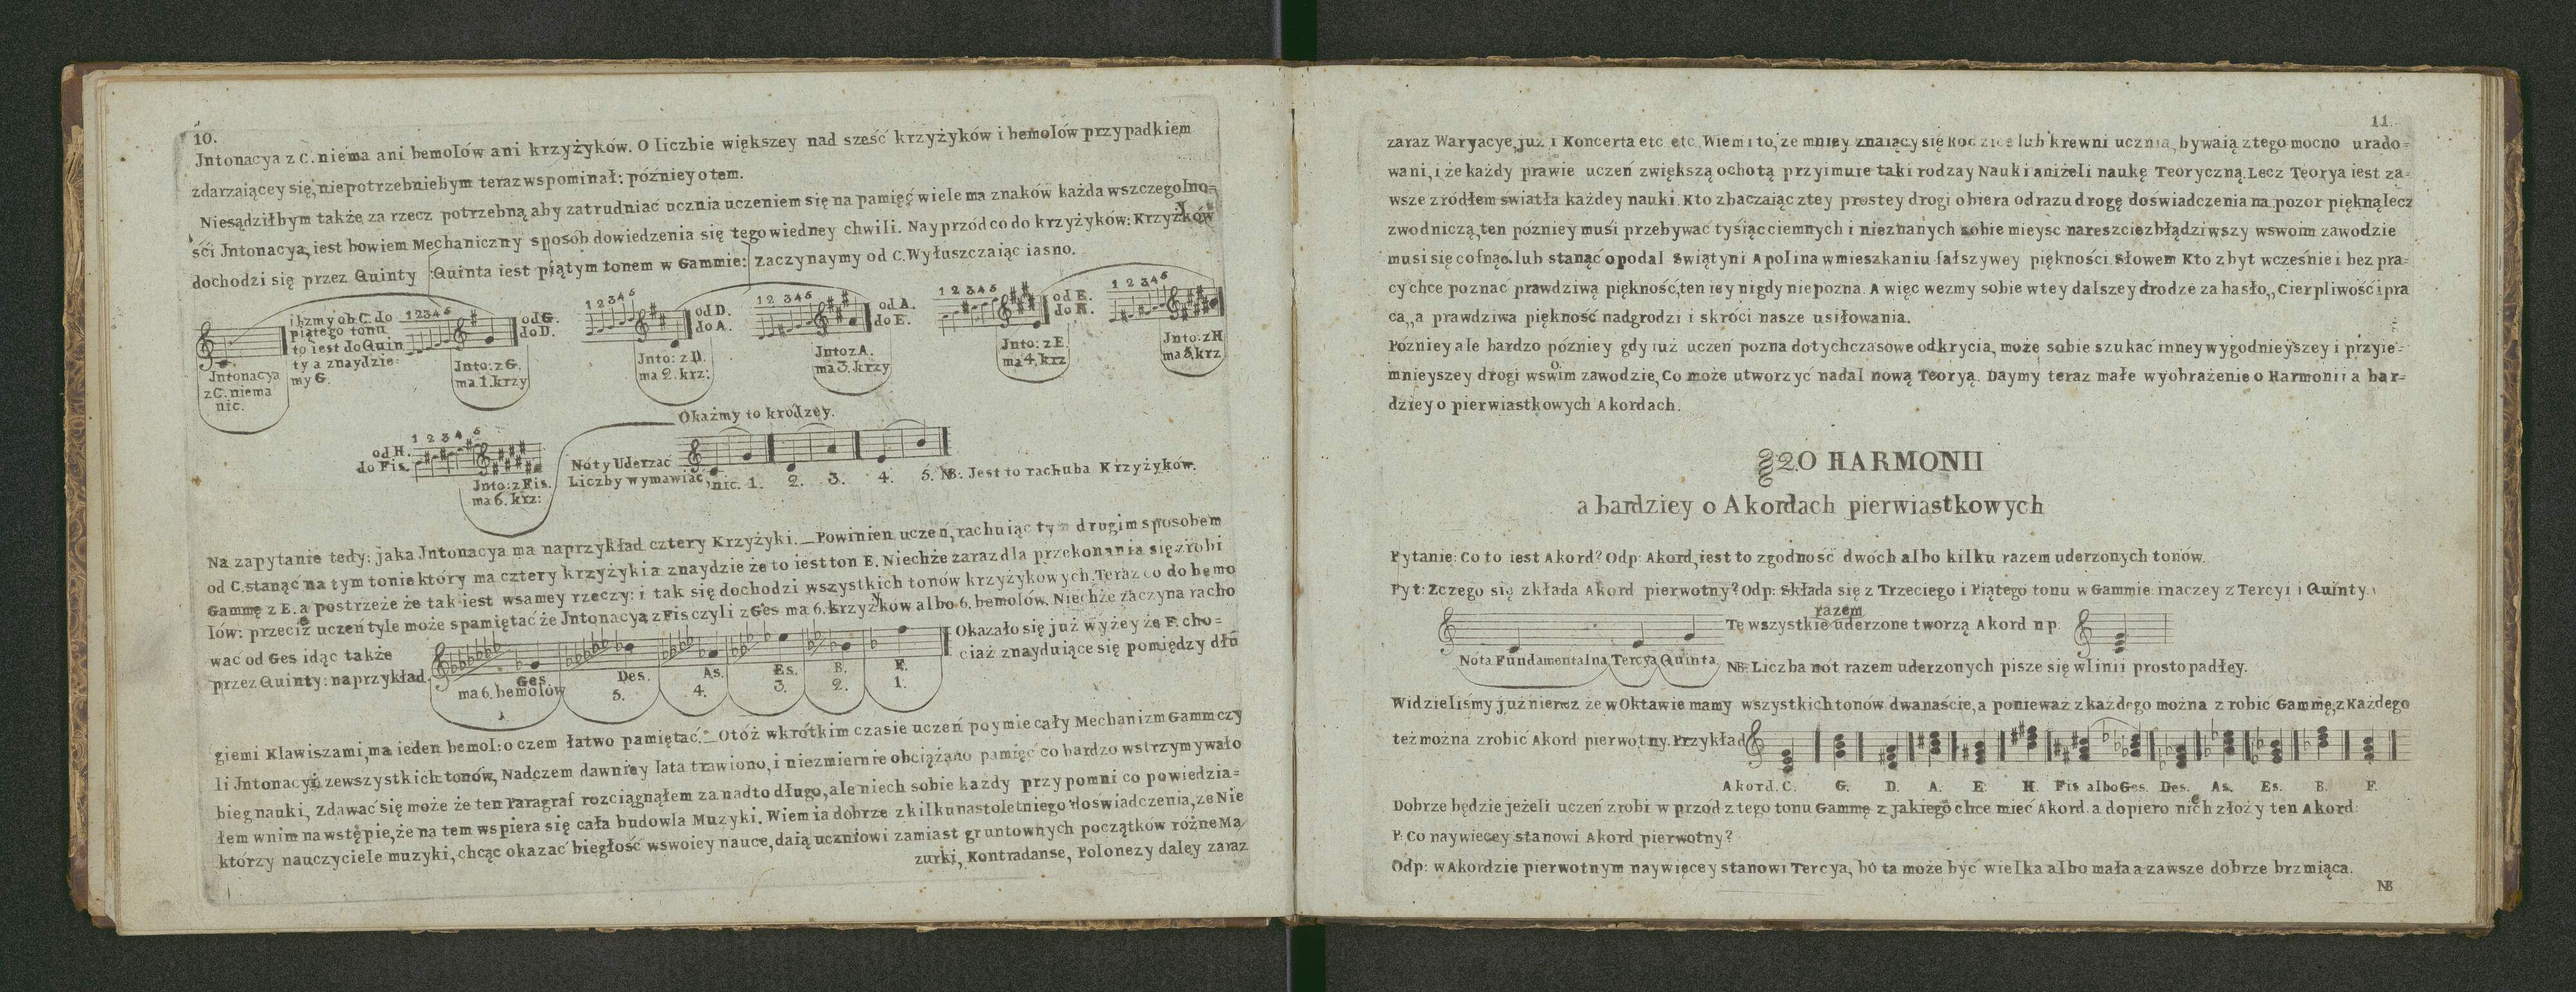 10.
Jntonacya z C. niema ani bemolów ani krzyżyków. O liczbie większey nad sześć krzyżyków i bemolów przypadkiem
zdarzaiącey się, niepotrzebniebym teraz wspominał: pózniey o tem.
Niesądziłbym także za rzecz potrzebną aby zatrudniać ucznia uczeniem się na pamięć wiele ma znaków każda wszczegolno=
ści Jntonacya, iest bowiem Mechaniczny sposób dowiedzenia się tego wiedney chwili. Nayprzód co do krzyżyków: Krzyżków
dochodzi się przez Quinty :Quinta iest piątym tonem w Gammie: Zaczynaymy od C. Wyłuszczaiąc iasno.
Jntonacya
z C. niema
nic.
ibzmy ob C. do
piątego tonu
to iest do Quin
ty a znaydzie=
my G.
1 2 3 4 5
od G.
do D.
Jnto: z G.
ma 1. krzy
1 2 3 4 5
od D.
do A.
Jnto: z D.
ma 2. krz:
1 2 3 4 5
od A.
do E.
Jnto z A.
ma 3. krzy
1 2 3 4 5
od E.
do H.
Jnto: z E.
ma 4. krz
1 2 3 4 5
Jnto: z H
ma 5. krz
Okażmy to krodzey.
od H.
do Fis.
1 2 3 4 5
Jnto: z Fis.
ma 6. krz:
Nóty Uderzać
Liczby wymawiać, nic. 1. 2. 3. 4. 5. NB: Jest to rachuba Krzyżyków.
Na zapytanie tedy: jaka Jntonacya ma naprzykład cztery Krzyżyki._ Powinien uczeń, rachuiąc tym drugim sposobem
od C. stanąć na tym tonie który ma cztery krzyżyki a znaydzie że to iest ton E. Niechże zaraz dla przekonania się zrobi
Gammę z E. a postrzeże że tak iest wsamey rzeczy: i tak się dochodzi wszystkich tonów krzyżykowych. Teraz co do bemo
lów: przeciéż uczeń tyle może spamiętać że Jntonacya z Fis czyli z Ges ma 6. krzyżyków albo 6. bemolów. Niechże zaczyna racho
wać od Ges idąc także
przez Quinty: naprzykład.
Ges.
ma 6. bemolów
Des.
5.
As.
4.
Es.
3.
B.
2.
F.
1.
Okazało się już wyżey że F. cho=
ciaż znayduiące się pomiędzy dłu
giemi Klawiszami, ma ieden bemol: o czem łatwo pamiętać._ Otóż wkrótkim czasie uczeń poymie cały Mechanizm Gamm czy
li Jntonacyi zewszystkich tonów, Nadczem dawniey lata trawiono, i niezmiernie obciążano pamięć co bardzo wstrzymywało
bieg nauki, Zdawać się może że ten Paragraf rozciągnąłem za nadto długo, ale niech sobie każdy przypomni co powiedzia=
łem wnim na wstępie, że na tem wspiera się cała budowla Muzyki. Wiem ia dobrze z kilkunastoletniego doświadczenia, że Nie
ktorzy nauczyciele muzyki, chcąc okazać biegłość wswoiey nauce, daią uczniowi zamiast gruntownych początków różne Ma
zurki, Kontradanse, Polonezy daley zaraz
11.
zaraz Waryacye, już i Koncerta etc etc. Wiem i to, że mniey znaiący się Rodzice lub krewni ucznia, bywaią z tego mocno urado=
wani, i że każdy prawie uczeń zwiększą ochotą przyimuie taki rodzay Nauki aniżeli naukę Teoryczną. Lecz Teorya iest za=
wsze zródłem światła każdey nauki. Kto zbaczaiąc z tey prostey drogi obiera odrazu drogę doświadczenia na pozor piękną lecz
zwodniczą, ten pózniey musi przebywać tysiąc ciemnych i nieznanych sobie mieysc nareszcie zbłądziwszy wswoim zawodzie
musi się cofnąć lub stanąć opodal Swiątyni Apolina wmieszkaniu fałszywey piękności. Słowem Kto zbyt wcześnie i bez pra=
cy chce poznać prawdziwą piękność, ten iey nigdy niepozna. A więc wezmy sobie wtey dalszey drodze za hasło,, Cierpliwość i pra
ca,, a prawdziwa piękność nadgrodzi i skróci nasze usiłowania.
Pózniey ale bardzo pózniey gdy iuż uczeń pozna dotychczasowe odkrycia, może sobie szukać inney wygodnieyszey i przyie=
mnieyszey drogi wswoim zawodzie, Co może utworzyć nadal nową Teoryą. Daymy teraz małe wyobrażenie o Harmonii a bar=
dziey o pierwiastkowych Akordach.
§ 2.O HARMONII
a bardziey o Akordach pierwiastkowych
Pytanie: Co to iest Akord? Odp: Akord, iest to zgodność dwóch albo kilku razem uderzonych tonów.
Pyt: Zczego się zkłada Akord pierwotny? Odp: Składa się z Trzeciego i Piątego tonu w Gammie: inaczey z Tercyi i Quinty.
Nóta Fundamentalna Tercya Quinta
razem
Te wszystkie uderzone tworzą Akord np.
NB: Liczba not razem uderzonych pisze się wlinii prostopadłey.
Widzieliśmy już nieraz że w Oktawie mamy wszystkich tonów dwanaście, a ponieważ z każdego można zrobić Gammę, z Każdego
też można zrobić Akord pierwotny. Przykład
Akord. C. G. D. A. E. H. Fis albo Ges. Des. As. Es. B. F.
Dobrze będzie jeżeli uczeń zrobi w przód z tego tonu Gammę z jakiego chce mieć Akord. a dopiero niech złoży ten Akord:
P: Co naywiecey stanowi Akord pierwotny?
Odp: w Akordzie pierwotnym naywięcey stanowi Tercya, bo ta może być wielka albo mała a zawsze dobrze brzmiąca.
NB